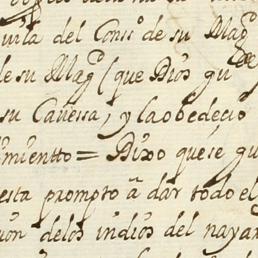 uila del Cons.o de su Mag.d
de su Mag.d (que Dios gu
su Caveza, y la obedecio
imientto = Dixo que se gu
esta prompto â dar todo el
ion delos indios del nayar